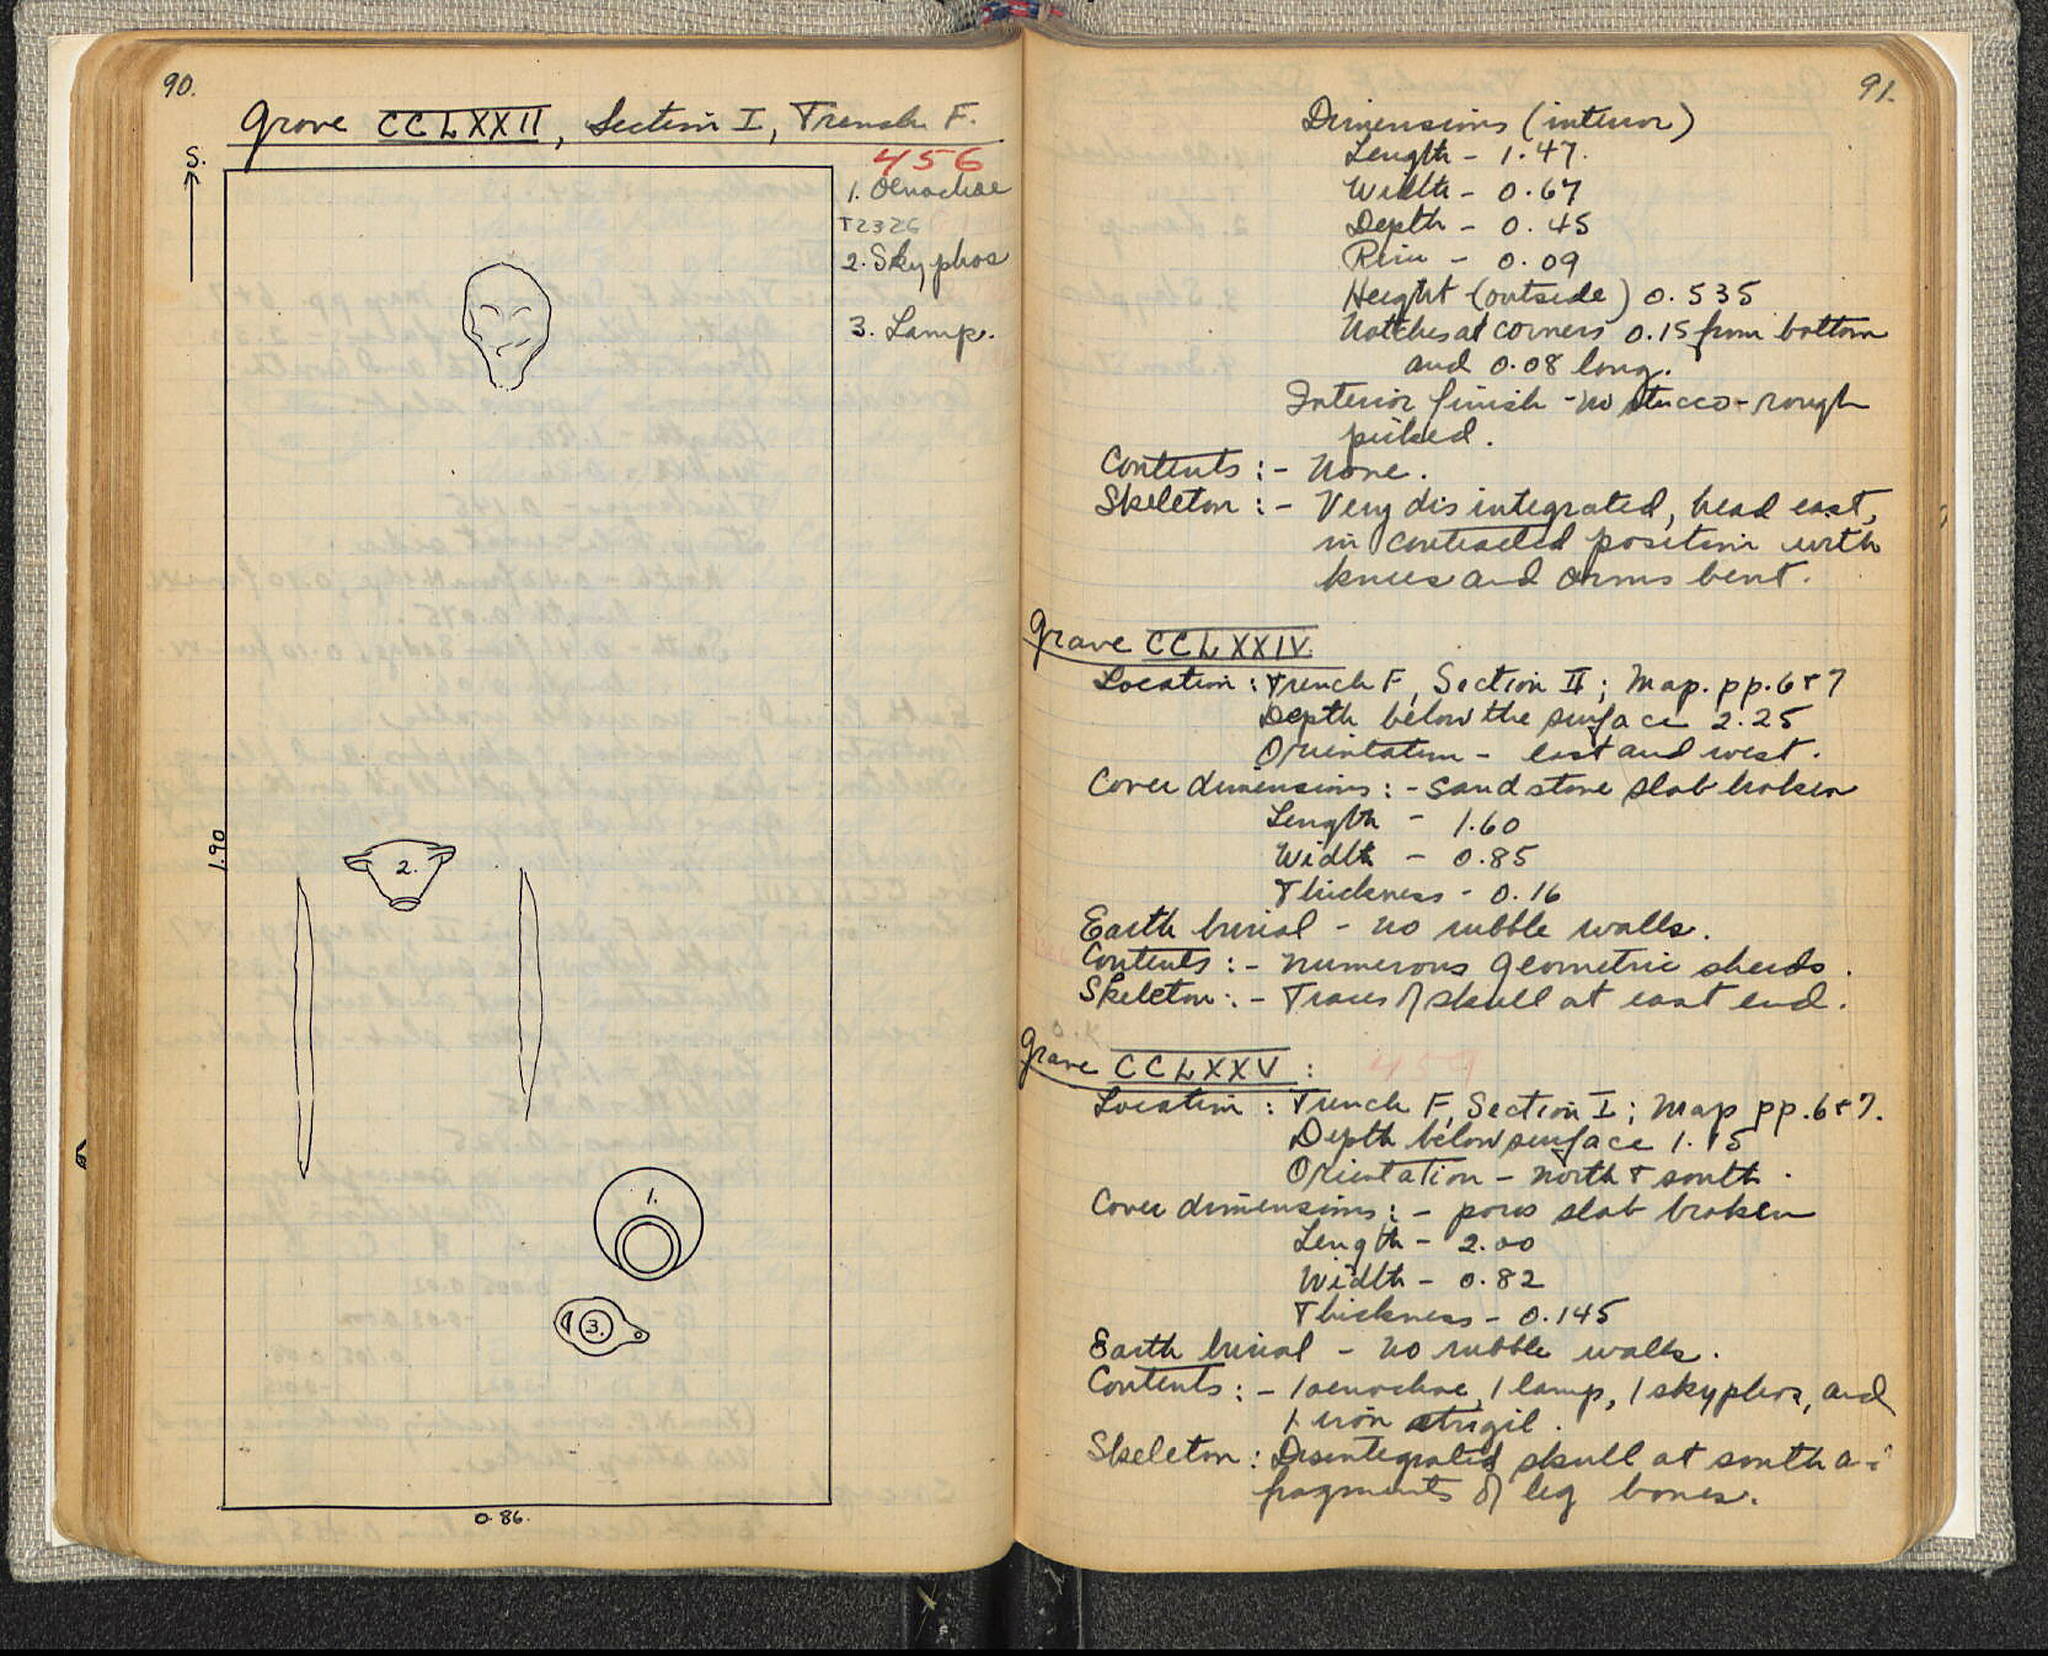 90.
Grave CCLXXII, Section I, Trench F.
S.
456
1. Oenochoe
T2326
2. Skyphos
3. Lamp.
1.90
2.
1.
3.
0.86.
91.
Dimensions (interior)
Length - 1.47.
Width - 0.67
Depth - 0.45
Rim - 0.09
Height (outside) 0.535
Notches at corners 0.15 from bottom
and 0.08 long.
Interior finish - no stucco - rough
picked.
Contents :- None.
Skeleton :- Very disintegrated, head east,
in contracted position with
knees and arms bent.
Grave CCLXXIV.
Location : Trench F, Section II; Map. pp. 6+7
Depth below the surface 2.25
Orientation - east and west.
Cover dimensions :- sandstone slab broken
Length - 1.60
Width - 0.85
Thickness - 0.16
Earth burial - no rubble walls.
Contents :- numerous geometric sherds.
Skeleton :- Traces of skull at east end.
Grave CCLXXV :
459
Location : Trench F, Section I; Map pp. 6+7.
Depth below surface 1.15
Orientation - north + south.
Cover dimensions :- poros slab broken
Length - 2.00
Width - 0.82
Thickness - 0.145
Earth burial - no rubble walls.
Contents :- 1 oenochoe, 1 lamp, 1 skyphos, and
1 iron strigil.
Skeleton : Disintegrated skull at south
fragments of leg bones.